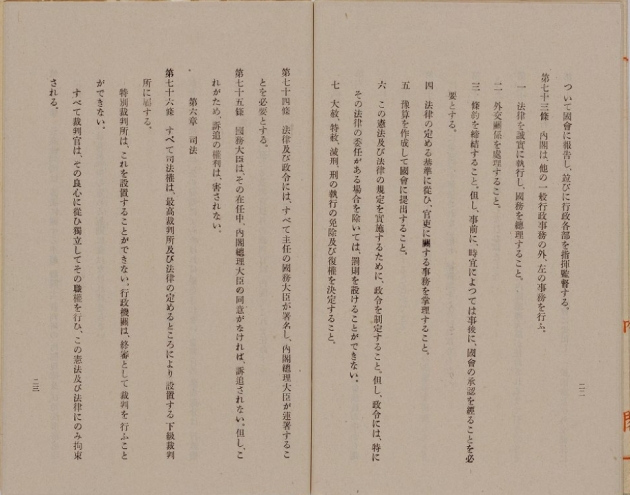 ついて國會に報告し、竝びに行政各部を指揮監督する。
第七十三條　內閣は、他の一般行政事務の外、左の事務を行ふ。
一　法律を誠實に執行し、國務を總理すること。
二　外交關係を處理すること。
三　條約を締結すること。但し、事前に、時宜によつては事後に、國會の承認を經ることを必
要とする。
四　法律の定める基準に從ひ、官吏に關する事務を掌理すること。
五　豫算を作成して國會に提出すること。
六　この憲法及び法律の規定を實施するために、政令を制定すること。但し、政令には、特に
その法律の委任がある場合を除いては、罰則を設けることができない。
七　大赦、特赦、減刑、刑の執行の免除及び復權を決定すること。
二二
第七十四條　法律及び政令には、すべて主任の國務大臣が署名し、內閣總理大臣が連署するこ
とを必要とする。
第七十五條　國務大臣は、その在任中、內閣總理大臣の同意がなければ、訴追されない。但し、こ
れがため、訴追の權利は、害されない。
第六章　司法
第七十六條　すべて司法權は、最高裁判所及び法律の定めるところにより設置する下級裁判
所に屬する。
特別裁判所は、これを設置することができない。行政機關は、終審として裁判を行ふこと
ができない。
すべて裁判官は、その良心に從ひ獨立してその職權を行ひ、この憲法及び法律にのみ拘束
される。
二三